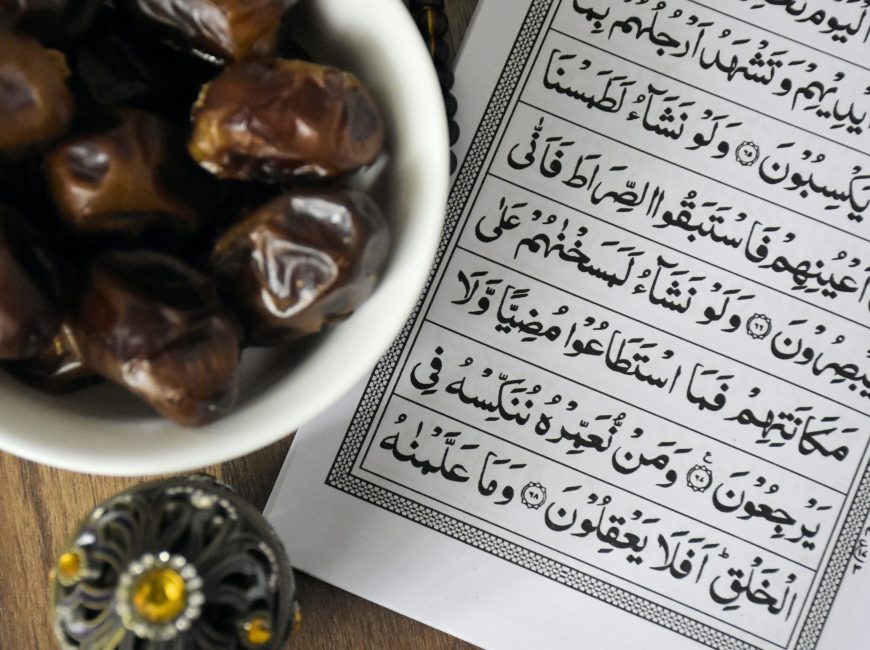 اَلْيَوْمَ
اَيْدِيْهِمْ وَتَشْهَدُ اَرْجُلُهُمْ بِمَا
يَكْسِبُوْنَ ۝۶۵ وَلَوْ نَشَآءُ لَطَمَسْنَا
اَعْيُنِهِمْ فَاسْتَبَقُوا الصِّرَاطَ فَاَنّٰى
يُبْصِرُوْنَ ۝۶۶ وَلَوْ نَشَآءُ لَمَسَخْنٰهُمْ عَلٰى
مَكَانَتِهِمْ فَمَا اسْتَطَاعُوْا مُضِيًّا وَّلَا
يَرْجِعُوْنَ ۝۶۷ وَمَنْ نُّعَمِّرْهُ نُنَكِّسْهُ فِى
الْخَلْقِ ؕ اَفَلَا يَعْقِلُوْنَ ۝۶۸ وَمَا عَلَّمْنٰهُ